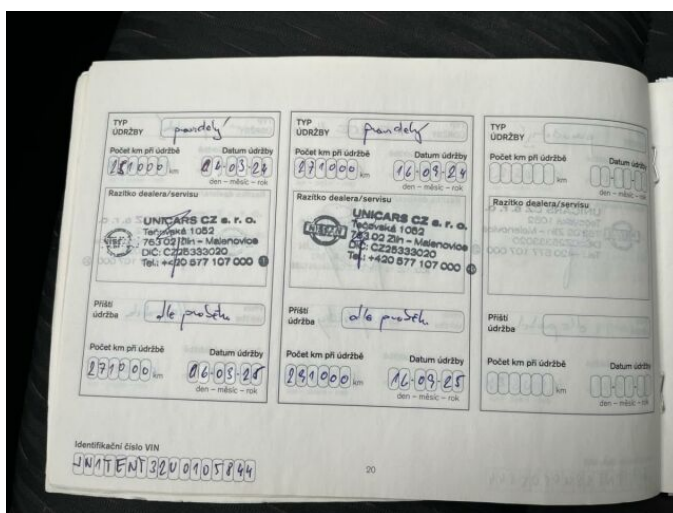 TYP
ÚDRŽBY
pravidelný
Počet km při údržbě
Datum údržby
km
04-03-24
den – měsíc – rok
Razítko dealera/servisu
UNICARS CZ s. r. o.
Tečovská 1082
763 02 Zlín – Malenovice
DIČ: CZ25333020
Tel.: +420 577 107 000
Příští
údržba
dle průběhu
Počet km při údržbě
Datum údržby
271000 km
den – měsíc – rok
TYP
ÚDRŽBY
pravidelný
Počet km při údržbě
Datum údržby
271000 km
16-09-24
den – měsíc – rok
Razítko dealera/servisu
NISSAN
UNICARS CZ s. r. o.
Tečovská 1082
763 02 Zlín – Malenovice
DIČ: CZ25333020
Tel.: +420 577 107 000
Příští
údržba
dle průběhu
Počet km při údržbě
Datum údržby
291000 km
16-09-25
den – měsíc – rok
TYP
ÚDRŽBY
Počet km při údržbě
Datum údržby
km
den – měsíc – rok
Razítko dealera/servisu
Příští
údržba
Počet km při údržbě
Datum údržby
km
den – měsíc – rok
Identifikační číslo VIN
JN1TENT32U0105844
20